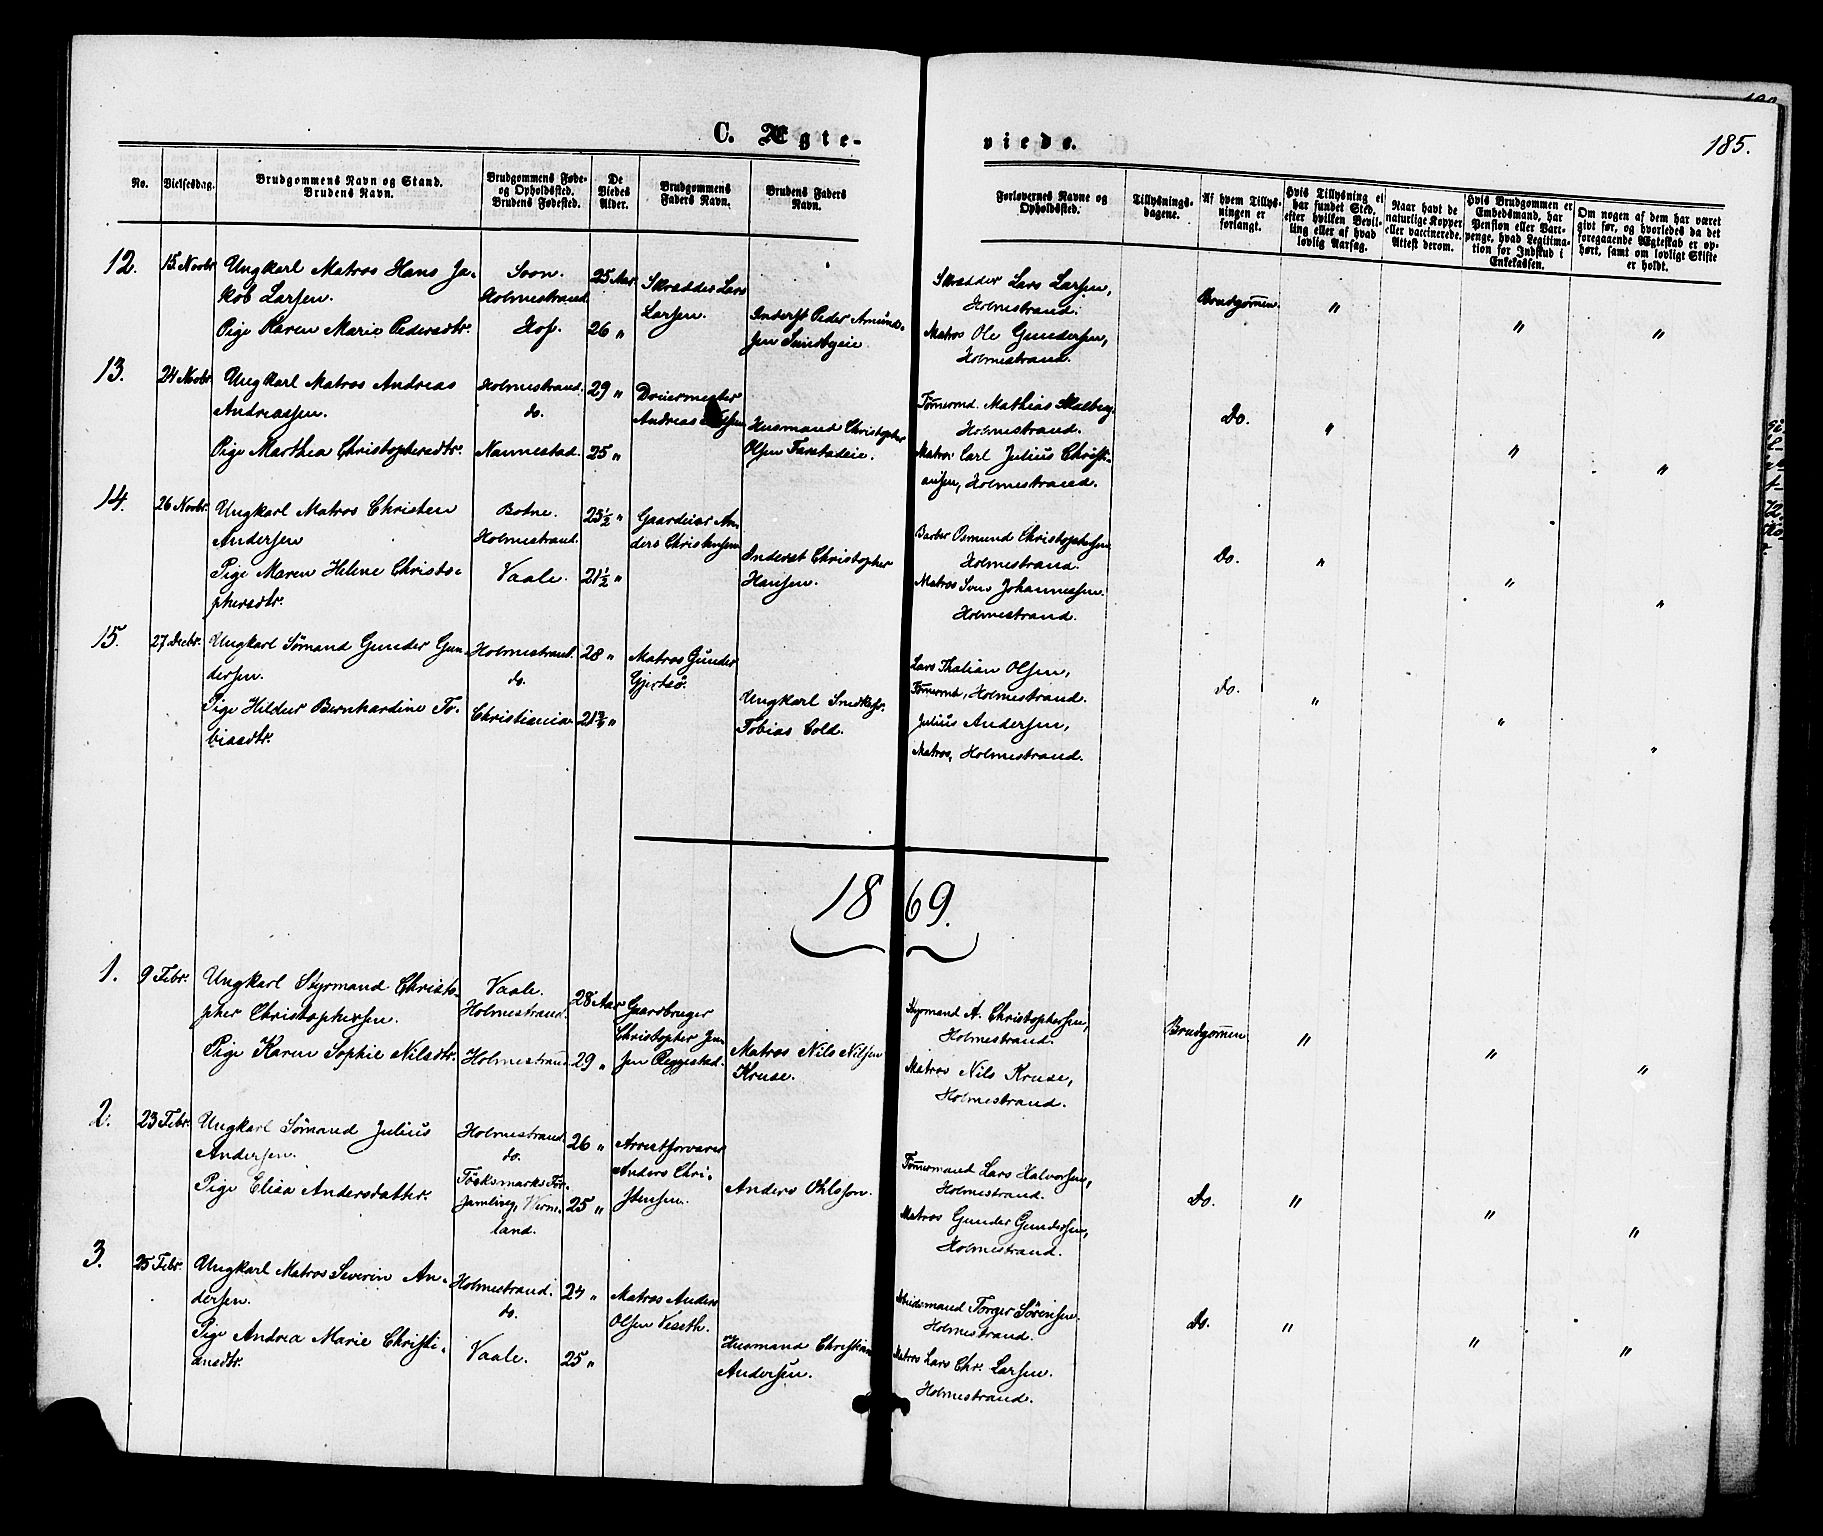 185.
C. Ægte- viede.
No.
Vielsesdag.
Brudgommens Navn og Stand.
Brudens Navn.
Brudgommens Føde-
og Opholdssted.
Brudens Fødested.
De
Viedes
Alder.
Brudgommens
Faders Navn.
Brudens Faders
Navn.
Forlovernes Navne og
Opholdssted.
Tillysnings-
dagene.
Af hvem Tillys-
ningen er
forlangt.
Hvis Tillysning ei
har fundet Sted,
efter hvilken Bevil-
ling eller af hvad
lovlig Aarsag.
Naar havt de
naturlige Kopper
eller vaccinerede.
Attest derom.
Hvis Brudgommen er
Embedsmand, har
Pension eller Vart-
penge, hvad Legitima-
tion for Indskud i
Enkekassen.
Om nogen af dem har været
givt før, og hvorledes da det
foregaaende Ægteskab er op-
hørt, samt om lovligt Skifte
er holdt.
12.
15 Novbr.
Ungkarl Matros Hans Ja-
kob Larsen.
Pige Karen Marie Pedersdtr.
Soon.
Holmestrand.
Hof.
25 Aar
26 "
Skrædder Lars
Larsen.
Inderst Peder Amund-
sen
Skrædder Lars Larsen,
Holmestrand.
Matros Ole Gundersen,
Holmestrand.
Brudgommen.
" " "
13.
24 Novbr.
Ungkarl Matros Andreas
Andreassen.
Pige Marthea Christophersdtr.
Holmestrand.
do.
Nannestad.
29 "
25 "
Dreiermester
Andreas
Husmand Christopher
Olsen
Tømermd. Mathias Skalberg.
Holmestrand.
Matros Carl Julius Christi-
ansen, Holmestrand.
Do.
" " "
14.
26 Novbr.
Ungkarl Matros Christen
Andersen
Pige Maren Helene Christo-
phersdtr.
Botne.
Holmestrand.
Vaale.
25½ "
21½ "
Gaardeier An-
ders Christensen
Inderst Christopher
Hansen.
Barber Osmund Christophersen
Holmestrand.
Matros Sens Johannessen.
Holmestrand.
Do.
" " "
15.
27 Decbr.
Ungkarl Sömand Gunder Gun-
dersen.
Pige Hildur Bernhardine To-
biasdtr.
Holmestrand.
do.
Christiania
28 "
21¾ "
Matros Gunder
Gjertsö.
Ungkarl
Tobias Cold.
Lars Thalian Olsen,
Tømermd, Holmestrand.
Julius Andersen,
Matros, Holmestrand.
Do.
" " "
1869.
1.
9 Febr.
Ungkarl Styrmand Christo-
pher Christophersen.
Pige Karen Sophie Nilsdtr.
Vaale.
Holmestrand.
Holmestrand
28 Aar
29 "
Gaardbruger
Christopher Jen-
sen Reggestad.
Matros Nils Nilsen
Kruse.
Styrmand A. Christophersen,
Holmestrand.
Matros Nils Kruse,
Holmestrand.
Brudgommen
" " "
2.
23 Febr.
Ungkarl Sömand Julius
Andersen.
Pige Elisa Andersdatter.
Holmestrand.
do.
Töcksmarks För-
samling, Verm-
land.
26 "
25 "
Arrestforvarer
Anders Chri-
stensen.
Anders Ohlsson.
Tømermand Lars Halvorsen,
Holmestrand.
Matros Gunder Gundersen,
Holmestrand.
Do.
" " "
3.
25 Febr.
Ungkarl Matros Severin An-
dersen.
Pige Andrea Marie Christi-
ansdtr.
Holmestrand.
do.
Vaale.
24 "
25 "
Matros Anders
Olsen Veseth.
Husmand Christian
Andersen.
Arbeidsmand Torger Sörensen.
Holmestrand.
Matros Lars Chr. Larsen.
Holmestrand.
Do.
" " "